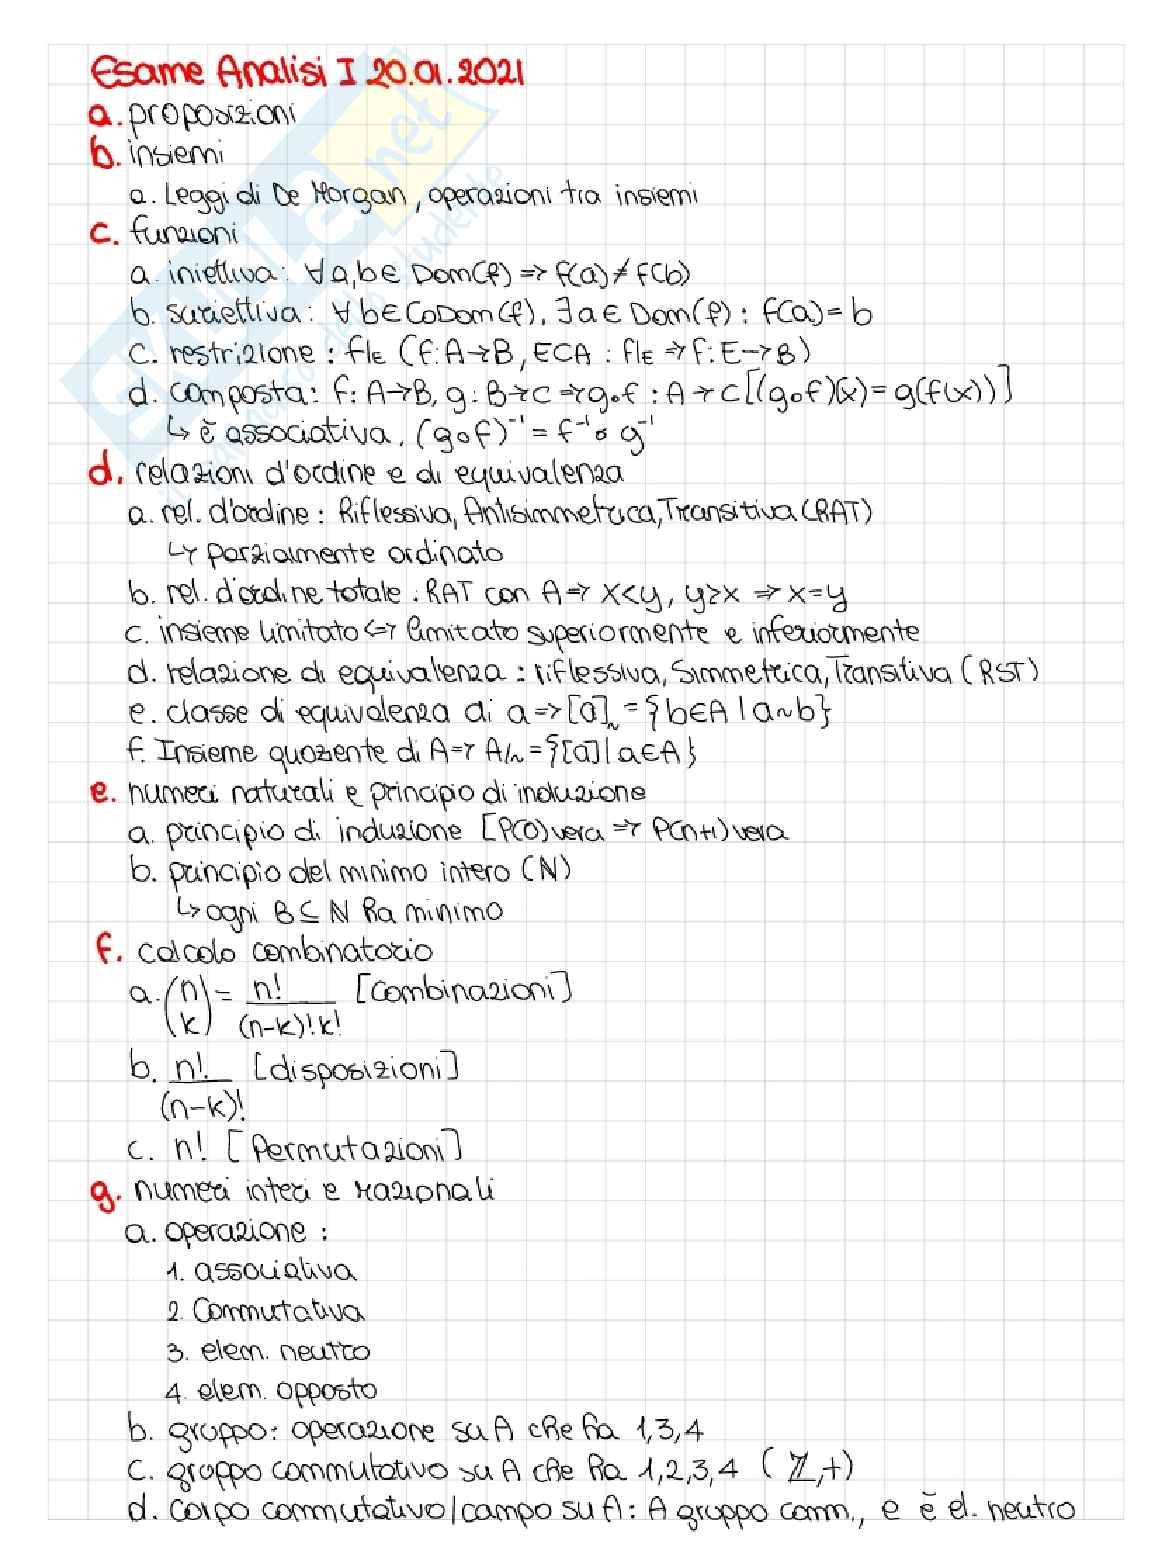 Esame Analisi I 20.01.2021
a. proposizioni
b. insiemi
a. Leggi di De Morgan, operazioni tra insiemi
c. funzioni
a. iniettiva: ∀a,b∈ Dom(f) => f(a) ≠ f(b)
b. suriettiva: ∀b∈CoDom(f), ∃a∈ Dom(f): f(a) = b
c. restrizione: f|E (f: A→B, E⊂A : f|E => f: E→B)
d. composta: f: A→B, g: B→C => g∘f : A→C [(g∘f)(x) = g(f(x))]
↳ è associativa, (g∘f)⁻¹ = f⁻¹∘ g⁻¹
d. relazioni d'ordine e di equivalenza
a. rel. d'ordine: Riflessiva, Antisimmetrica, Transitiva (RAT)
↳ parzialmente ordinato
b. rel. d'ordine totale: RAT con A => x<y, y≥x => x=y
c. insieme limitato <=> limitato superiormente e inferiormente
d. relazione di equivalenza: riflessiva, Simmetrica, Transitiva (RST)
e. classe di equivalenza di a => [a]~ = {b∈A | a~b}
f. Insieme quoziente di A => A/~ = {[a] | a∈A}
e. numeri naturali e principio di induzione
a. principio di induzione [P(0) vera => P(n+1) vera
b. principio del minimo intero (N)
↳ ogni B ⊆ ℕ ha minimo
f. calcolo combinatorio
a. (n k) = n!/(n-k)!k! [combinazioni]
b. n!/(n-k)! [disposizioni]
c. n! [Permutazioni]
g. numeri interi e razionali
a. operazione:
1. associativa
2. Commutativa
3. elem. neutro
4. elem. opposto
b. gruppo: operazione su A che ha 1,3,4
c. gruppo commutativo su A che ha 1,2,3,4 (ℤ,+)
d. corpo commutativo/campo su A: A gruppo comm., e è el. neutro